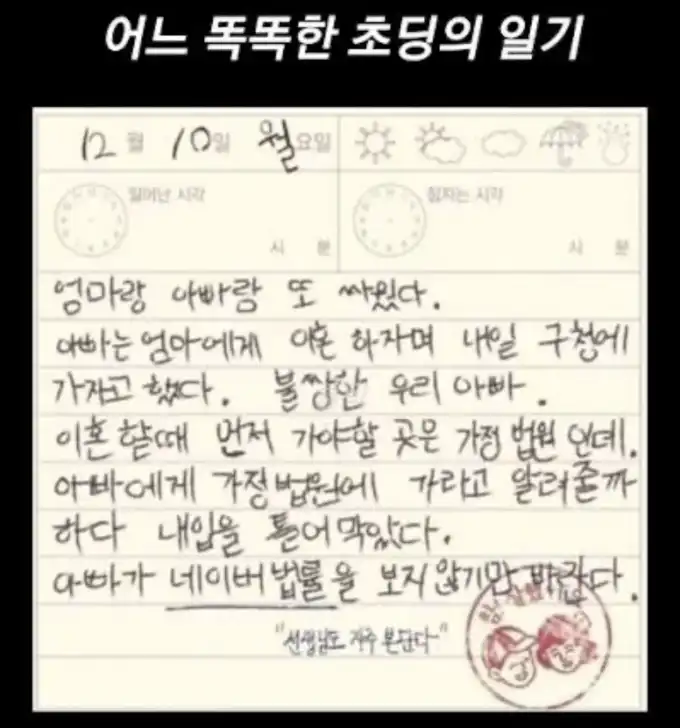 어느 똑똑한 초딩의 일기
12월 10일 월요일
일어난 시각 잠자는 시각
시 분 시 분
엄마랑 아빠랑 또 싸웠다.
아빠는 엄마에게 이혼 하자며 내일 구청에
가자고 했다. 불쌍한 우리 아빠.
이혼 할때 먼저 가야할 곳은 가정 법원 인데.
아빠에게 가정법원에 가라고 알려줄까
하다 내입을 틀어막았다.
아빠가 네이버법률을 보지 않기만 바란다.
"선생님도 자주 본단다"